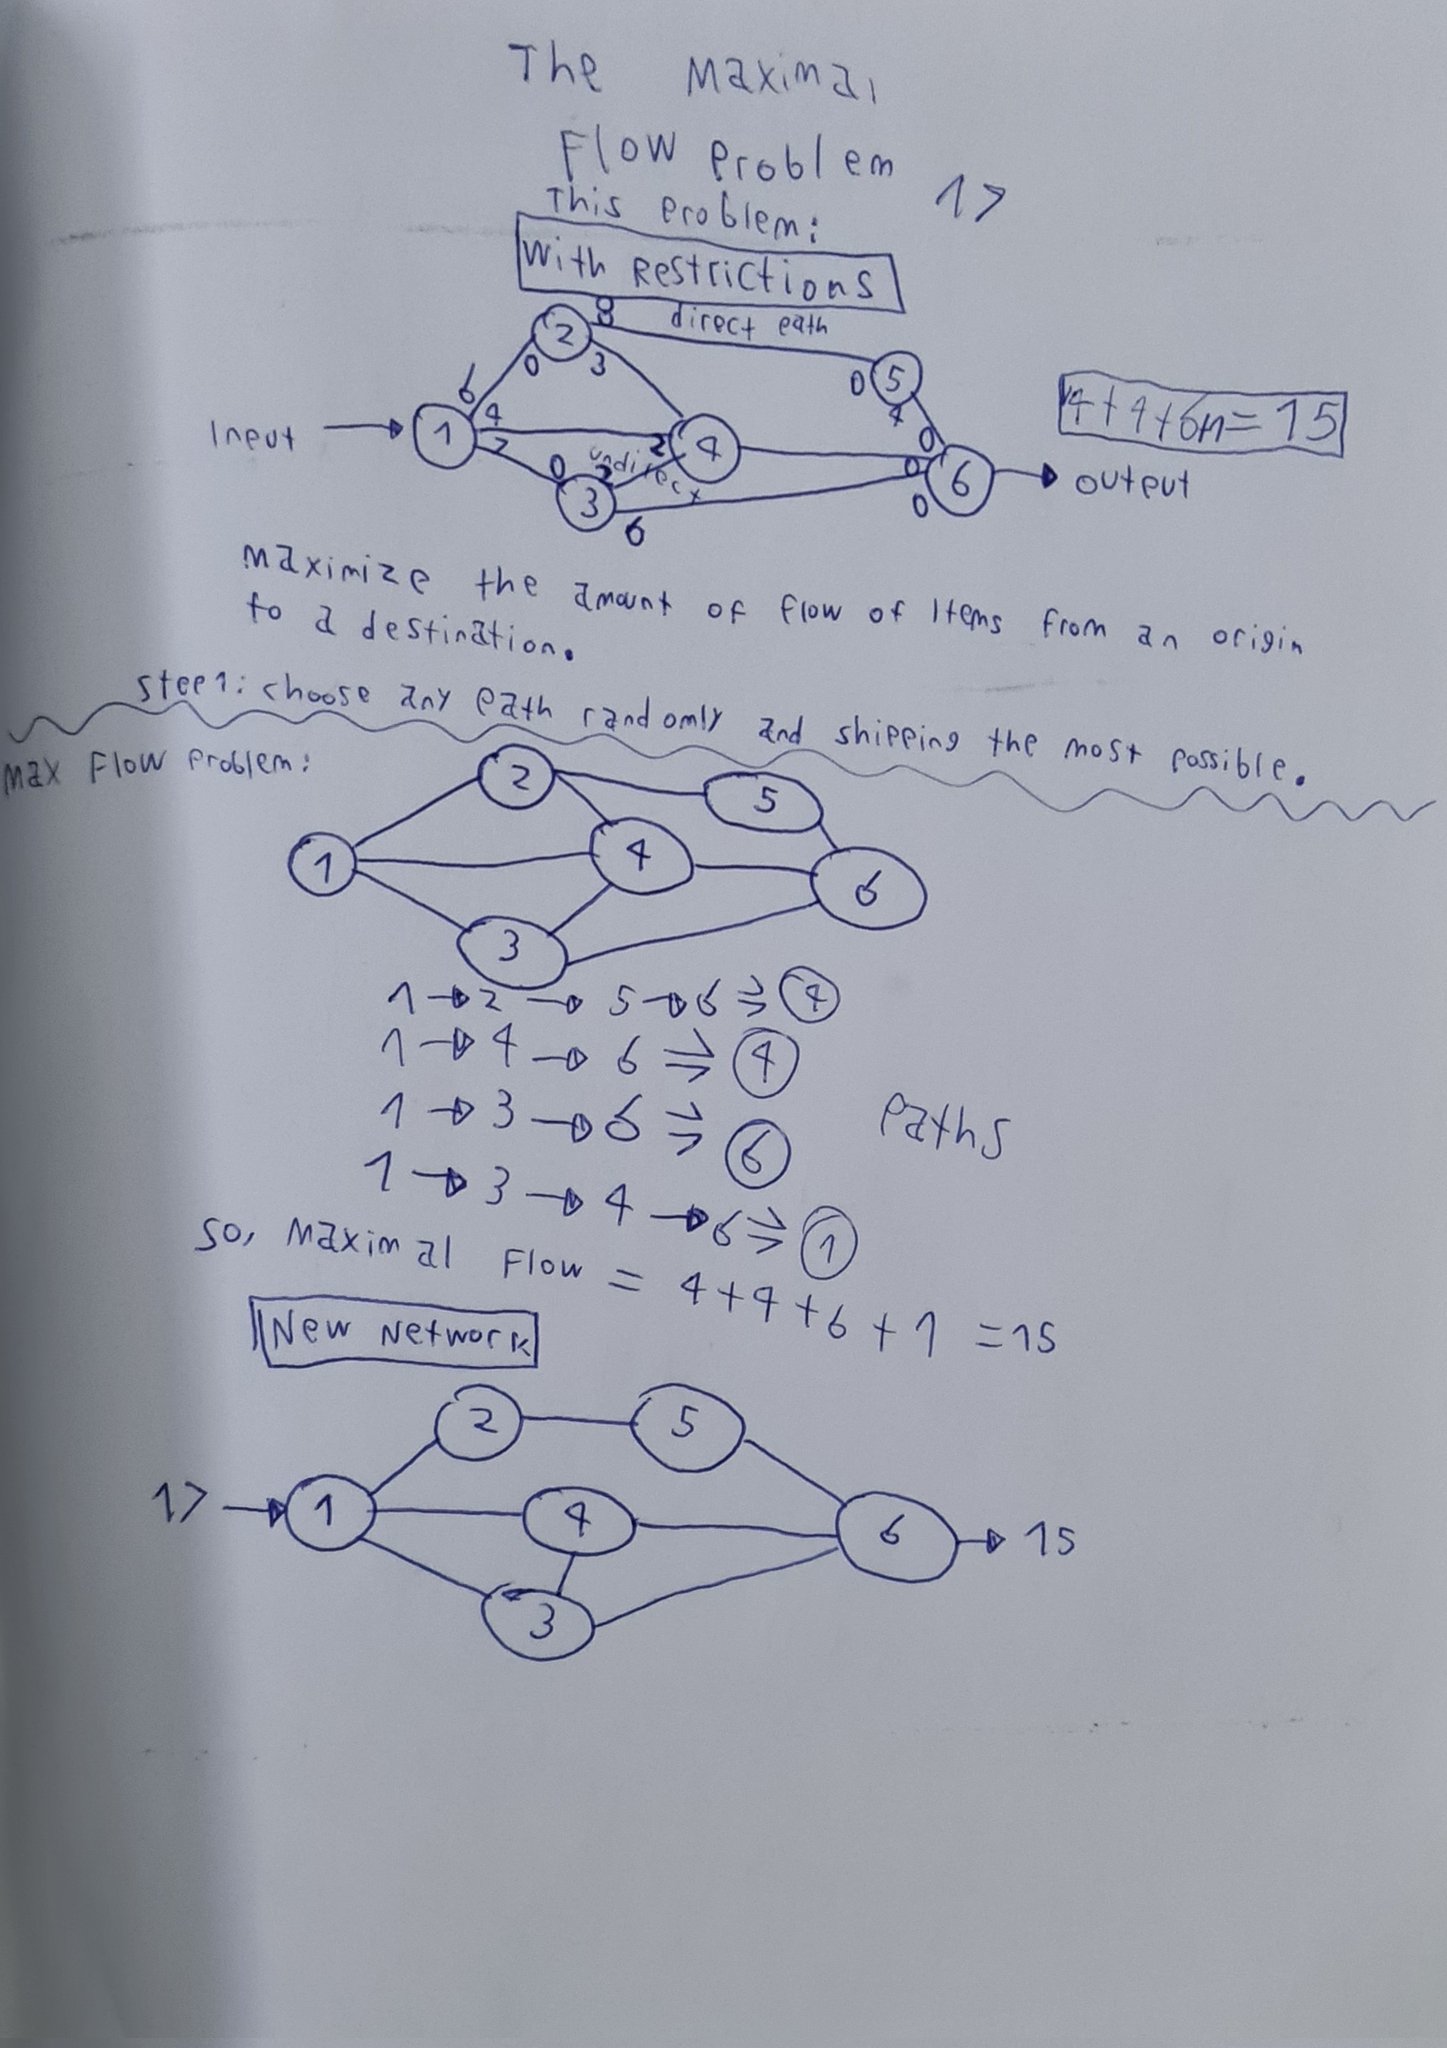 The Maximal
Flow Problem
17
This Problem:
With Restrictions
8 direct path
2
0 3
0 5
6
4
4+4+6+1=15
Input 1 4 2 4
7 0 undirect 2
4 0
0 6 output
3
6 0
Maximize the amount of flow of Items from an origin
to a destination.
Step1: choose any path randomly and shipping the most possible.
Max Flow Problem:
2
5
1 4 6
3
1 → 2 → 5 → 6 ⇒ 4
1 → 4 → 6 ⇒ 4
1 → 3 → 6 ⇒ 6
Paths
1 → 3 → 4 → 6 ⇒ 1
So, Maximal Flow = 4+4+6+1 =15
New Network
2 5
17 → 1 4 6 → 15
3